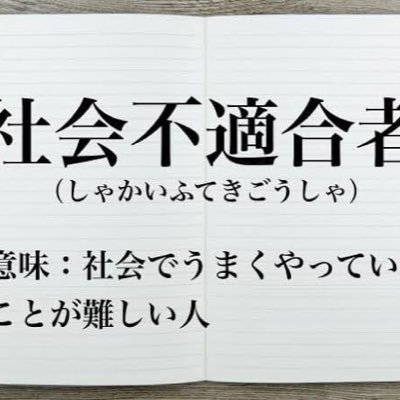 社会不適合者
（しゃかいふてきごうしゃ）
意味：社会でうまくやってい
ことが難しい人